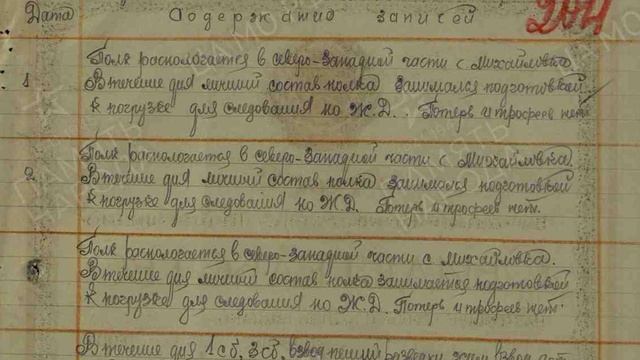 Дата Содержание записей
Полк распологается в северо-западной части с Михайловка
1 В течение дня личный состав полка занимался подготовкой
к погрузке для следования по Ж.Д.. Потерь и трофеев нет.
Полк распологается в северо-западной части с Михайловка.
2 В течение дня личный состав полка занимался подготовкой
к погрузке для следования по Ж.Д. Потерь и трофеев нет.
Полк распологается в северо-западной части с Михайловка.
3 В течение дня личный состав полка занимается подготовкой
к погрузке для следования по Ж.Д. Потерь и трофеев нет.
В течение дня 1 сб, 3 сб, взвод пешей разведки, хим взвод